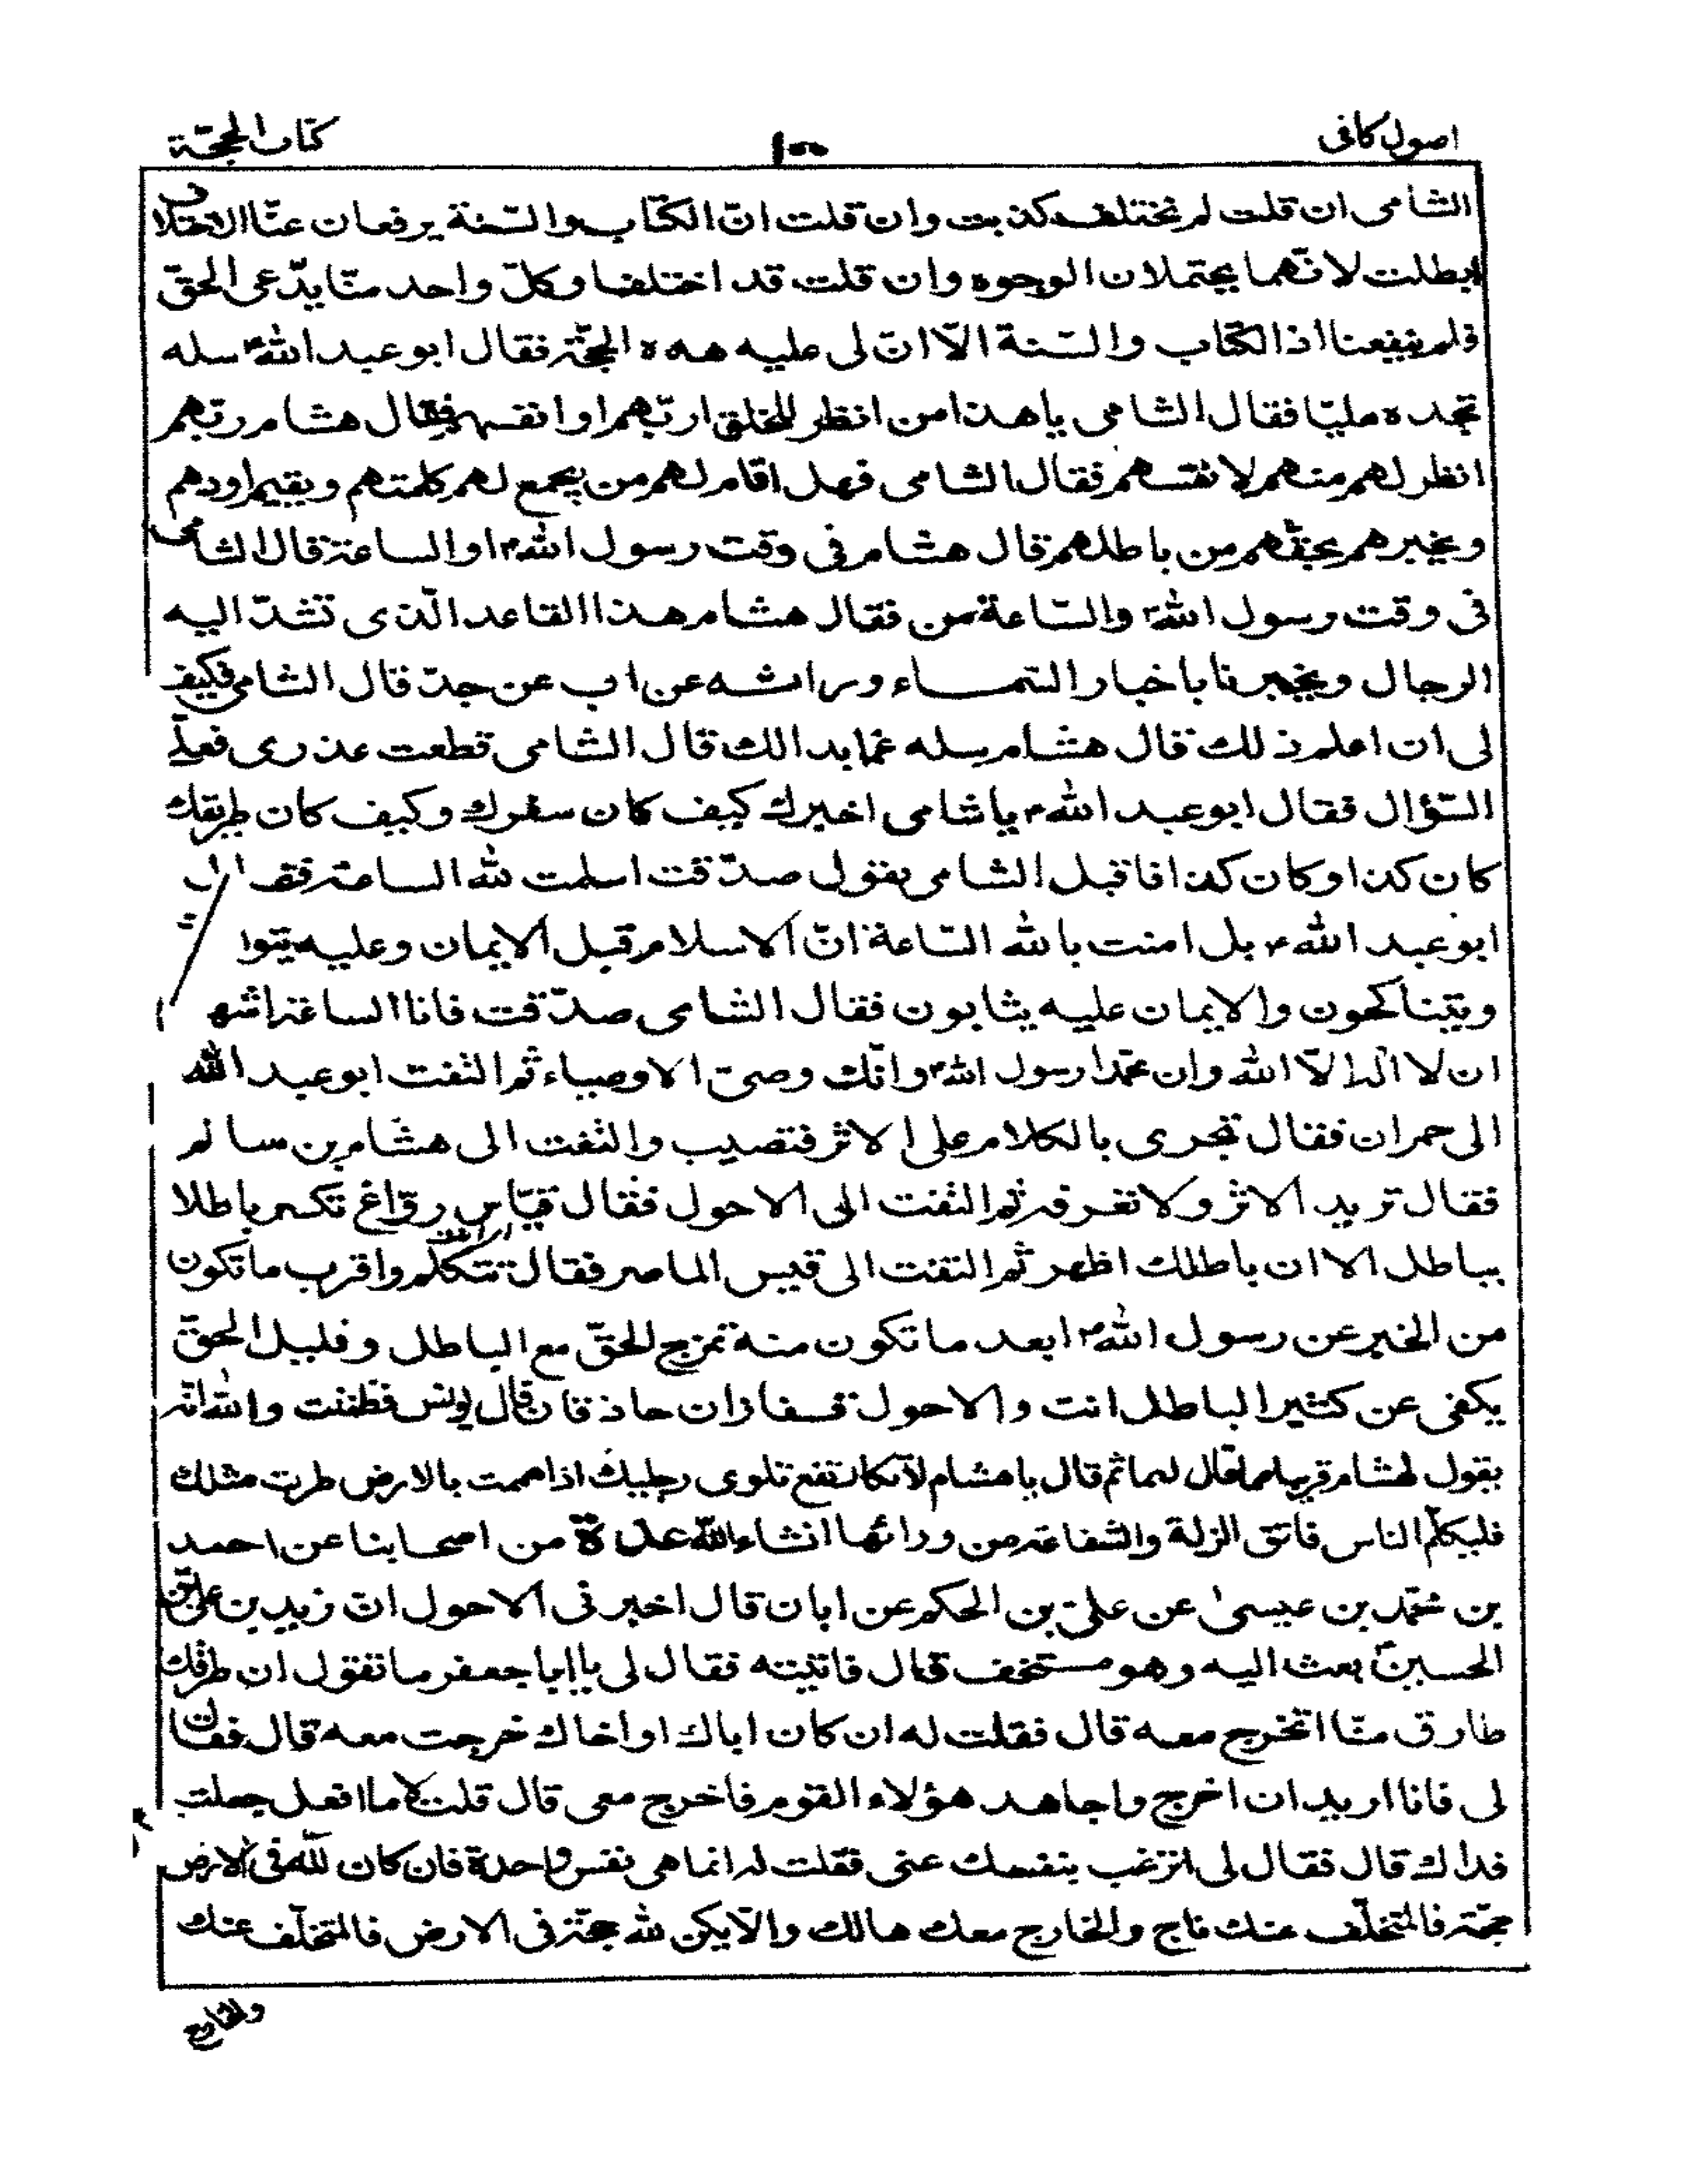 اصول كافى ١٠٠ كتاب الحجّة
الشامى ان قلت لم نختلف كذبت وان قلت انّ الكتاب والسّنة يرفعان عنّا الاختلاف
ابطلت لانّهما يحتملان الوجوه وان قلت قد اختلفنا وكلّ واحد منّا يدّعى الحقّ
فلم ينفعنا اذا الكتاب والسّنة الّا انّ لى عليه هذه الحجّة فقال ابو عبد الله ع سله
تجده مليّا فقال الشامى يا هذا من انظر للخلق اربّهم او انفسهم فقال هشام ربّهم
انظر لهم منهم لانفسهم فقال الشامى فهل اقام لهم من يجمع لهم كلمتهم ويقيم اودهم
ويخبرهم بحقّهم من باطلهم قال هشام فى وقت رسول الله ص او الساعة قال الشامى
فى وقت رسول الله ص والسّاعة من فقال هشام هذا القاعد الّذى تشدّ اليه
الرحال ويخبرنا باخبار السّماء وراثه عن اب عن جدّ قال الشامى فكيف
لى ان اعلم ذلك قال هشام سله عمّا بدا لك قال الشامى قطعت عذرى فعلىّ
السّؤال فقال ابو عبد الله ع يا شامى اخبرك كيف كان سفرك وكيف كان طريقك
كان كذا وكان كذا فاقبل الشامى يقول صدّقت اسلمت لله الساعة فقال
ابو عبد الله ع بل امنت بالله السّاعة انّ الاسلام قبل الايمان وعليه يتوا
ويتناكحون والايمان عليه يثابون فقال الشامى صدّقت فانا الساعة اشهد
ان لا اله الّا الله وان محمّدا رسول الله ص وانّك وصىّ الاوصياء ثم التفت ابو عبد الله
الى حمران فقال تجرى بالكلام على الاثر فتصيب والتفت الى هشام بن سالم
فقال تريد الاثر ولا تعرفه ثم التفت الى الاحول فقال قيّاس روّاغ تكسر باطلا
بباطل الا ان باطلك اظهر ثم التفت الى قيس الماصر فقال تتكلّم واقرب ما تكون
من الخبر عن رسول الله ص ابعد ما تكون منه تمزج الحقّ مع الباطل وقليل الحقّ
يكفى عن كثير الباطل انت والاحول قفازان حاذقان قال يونس فظننت والله انّه
يقول لهشام قريبا مما قال لهما ثم قال يا هشام لا تكاد تقع تلوى رجليك اذا هممت بالارض طرت مثلك
فليكلّم الناس فاتق الزلة والشفاعة من ورائها انشاء الله عدة من اصحابنا عن احمد
بن محمّد بن عيسىٰ عن علىّ بن الحكم عن ابان قال اخبرنى الاحول انّ زيد بن على بن
الحسين ع بعث اليه وهو مستخف قال فاتيته فقال لى يا ابا جعفر ما تقول ان طرقك
طارق منّا اتخرج معه قال فقلت له ان كان اباك او اخاك خرجت معه قال فقال
لى فانا اريد ان اخرج واجاهد هؤلاء القوم فاخرج معى قال قلت لا ما افعل جعلت
فداك قال فقال لى اترغب بنفسك عنى فقلت له انما هى نفس واحدة فان كان لله فى الارض
حجّة فالمتخلّف عنك ناج والخارج معك هالك والّا يكن لله حجّة فى الارض فالمتخلّف عنك
والخارج